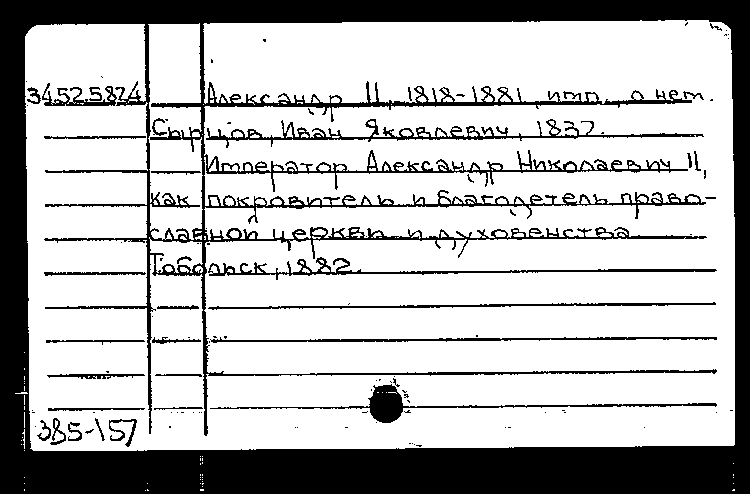 3452.5824 Александр II, 1818-1881, имп., о нем.
Сырцов, Иван Яковлевич, 1837.
Император Александр Николаевич II,
как покровитель и благодетель право-
славной церкви и духовенства
Тобольск, 1882.
385-157